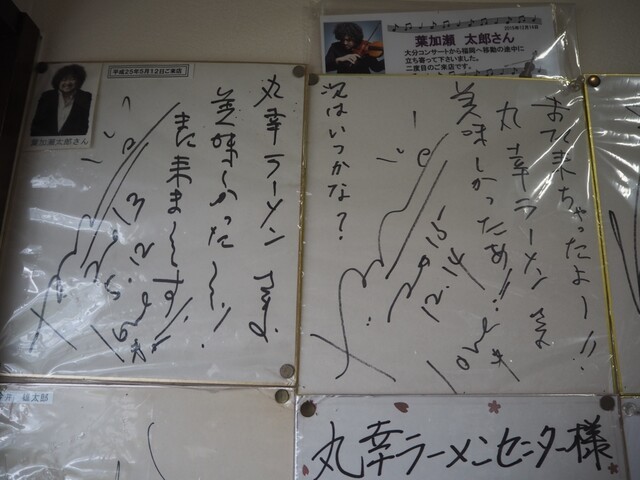 2015年12月14日
葉加瀬 太郎さん
大分コンサートから福岡へ移動の途中に
立ち寄って下さいました。
二度目のご来店です。
平成25年5月12日ご来店
葉加瀬太郎さん
丸幸ラーメン さま
美味しかったー!!
また来まーす!!
13.5.12
また来ちゃったよー!!
丸幸ラーメン さま
美味しかったあ!!
次はいつかな?
15.12.14
丸幸ラーメンセンター様